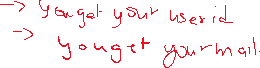 → you get your user id
→ you get your mail